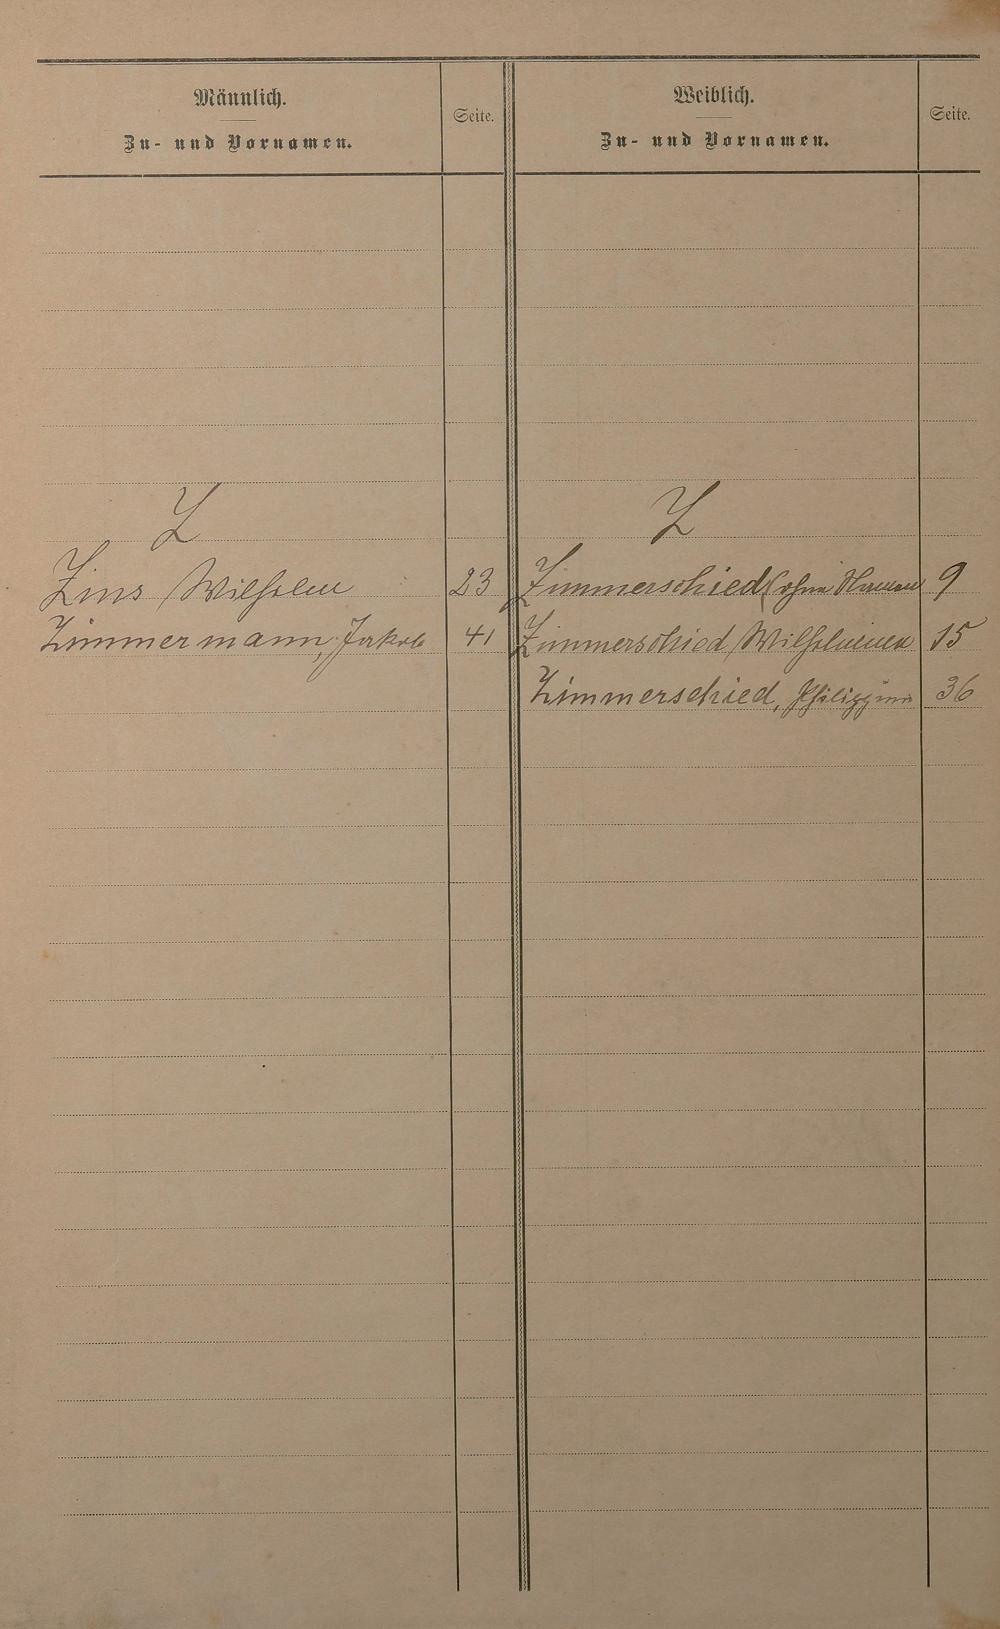 Männlich.
Zu- und Vornamen.
Seite.
Weiblich.
Zu- und Vornamen.
Seite.
Z
Zins Wilhelm 23
Zimmermann, Jakob 41
Z
Zimmerschied (ohne Namen 9
Zimmerschied Wilhelmine 15
Zimmerschied, Philippine 36